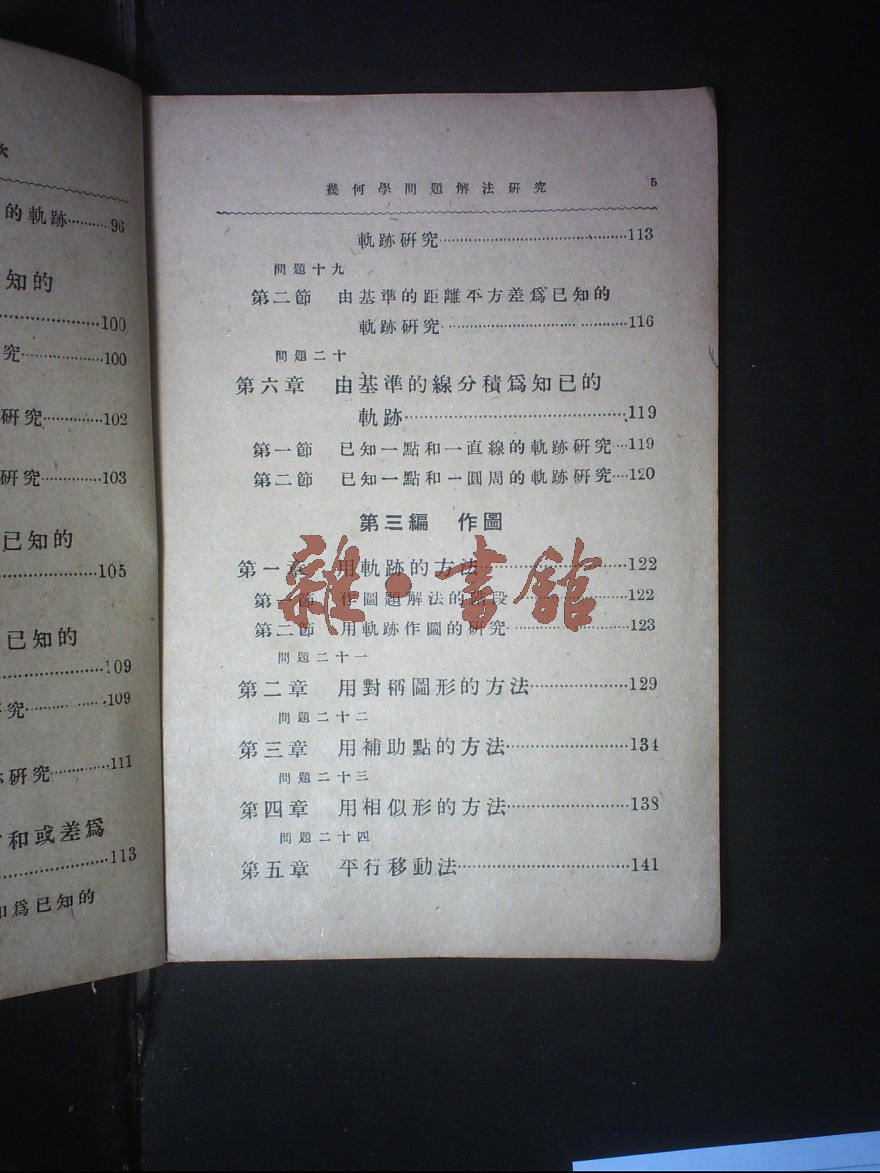 的軌跡………96
知的
………100
究………100
研究………102
研究………103
已知的
………105
已知的
………109
究………109
研究………111
和或差爲
………113
爲已知的
幾何學問題解法研究 5
軌跡研究………113
問題十九
第二節 由基準的距離平方差爲已知的
軌跡研究………116
問題二十
第六章 由基準的線分積爲知已的
軌跡………119
第一節 已知一點和一直線的軌跡研究…119
第二節 已知一點和一圓周的軌跡研究…120
第三編 作圖
第一章 用軌跡的方法………122
第一節 作圖題解法的階段………122
第二節 用軌跡作圖的研究………123
問題二十一
第二章 用對稱圖形的方法………129
問題二十二
第三章 用補助點的方法………134
問題二十三
第四章 用相似形的方法………138
問題二十四
第五章 平行移動法………141
雜·書館